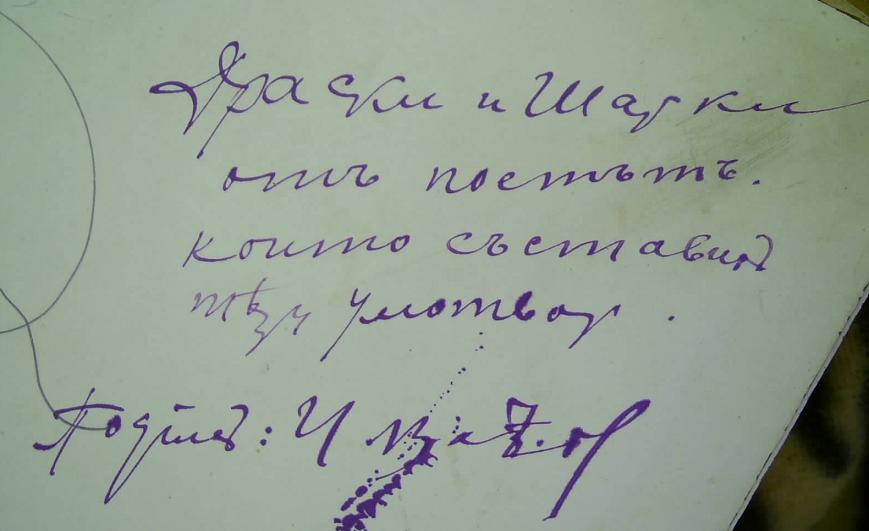 Драски и Шарки
отъ поетътъ.
които съставий
тѣзи умотвор.
Подписъ: